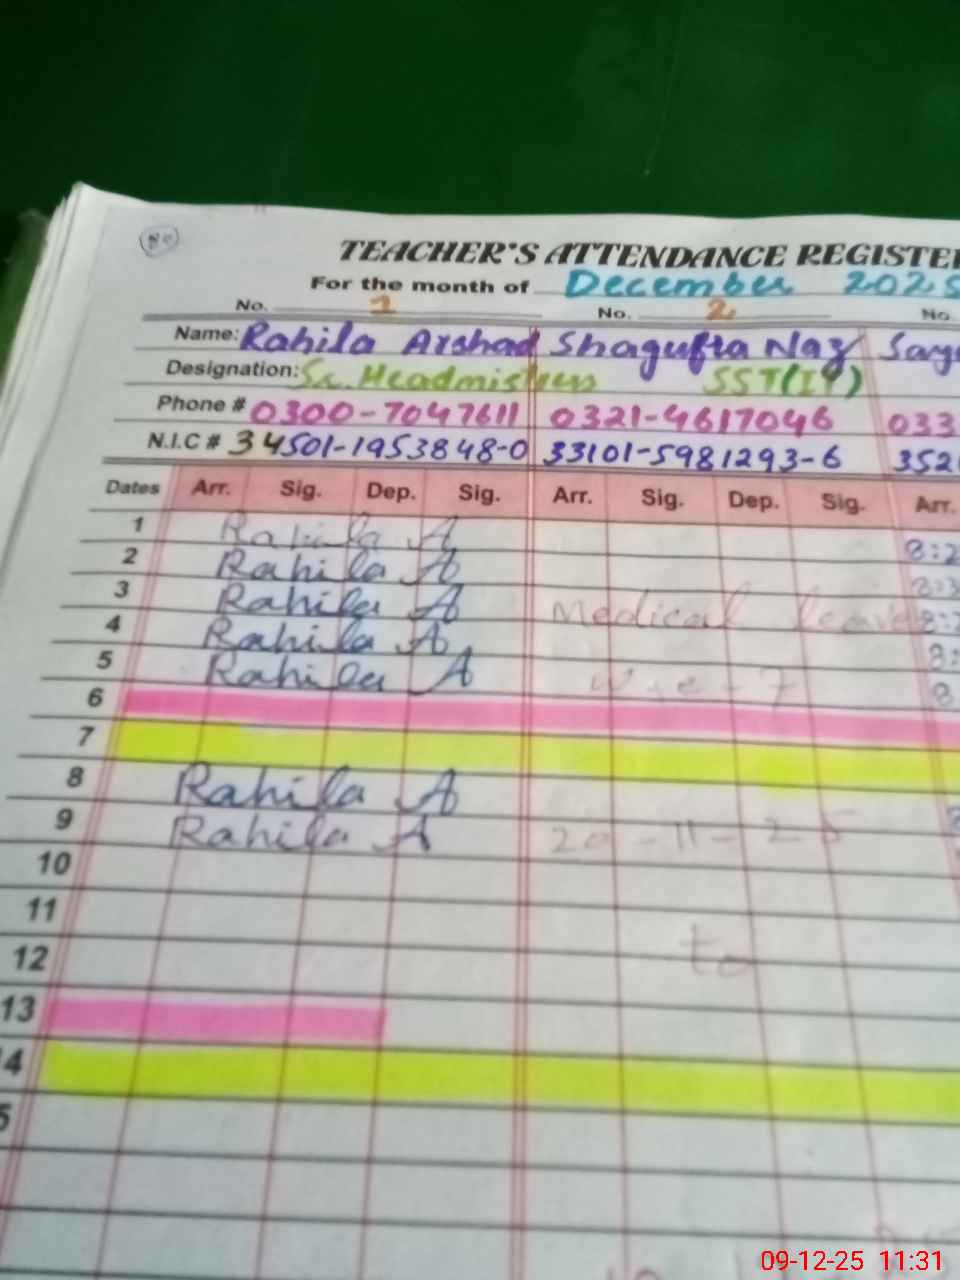 80
TEACHER'S ATTENDANCE REGISTE
For the month of December 2025
No. 1 No. 2 No.
Name: Rahila Arshad Shagufta Naz
Designation: Sr. Headmistress SST(IT)
Phone # 0300-7047611 0321-4617046 033
N.I.C # 34501-1953848-0 33101-5981293-6 352
Dates Arr. Sig. Dep. Sig. Arr. Sig. Dep. Sig. Arr.
1 Rahila A 8:2
2 Rahila A
3 Rahila A Medical leave
4 Rahila A
5 Rahila A w.e-7
6
7
8 Rahila A
9 Rahila A 20-11-25
10
11
12 to
13
14
5
09-12-25 11:31